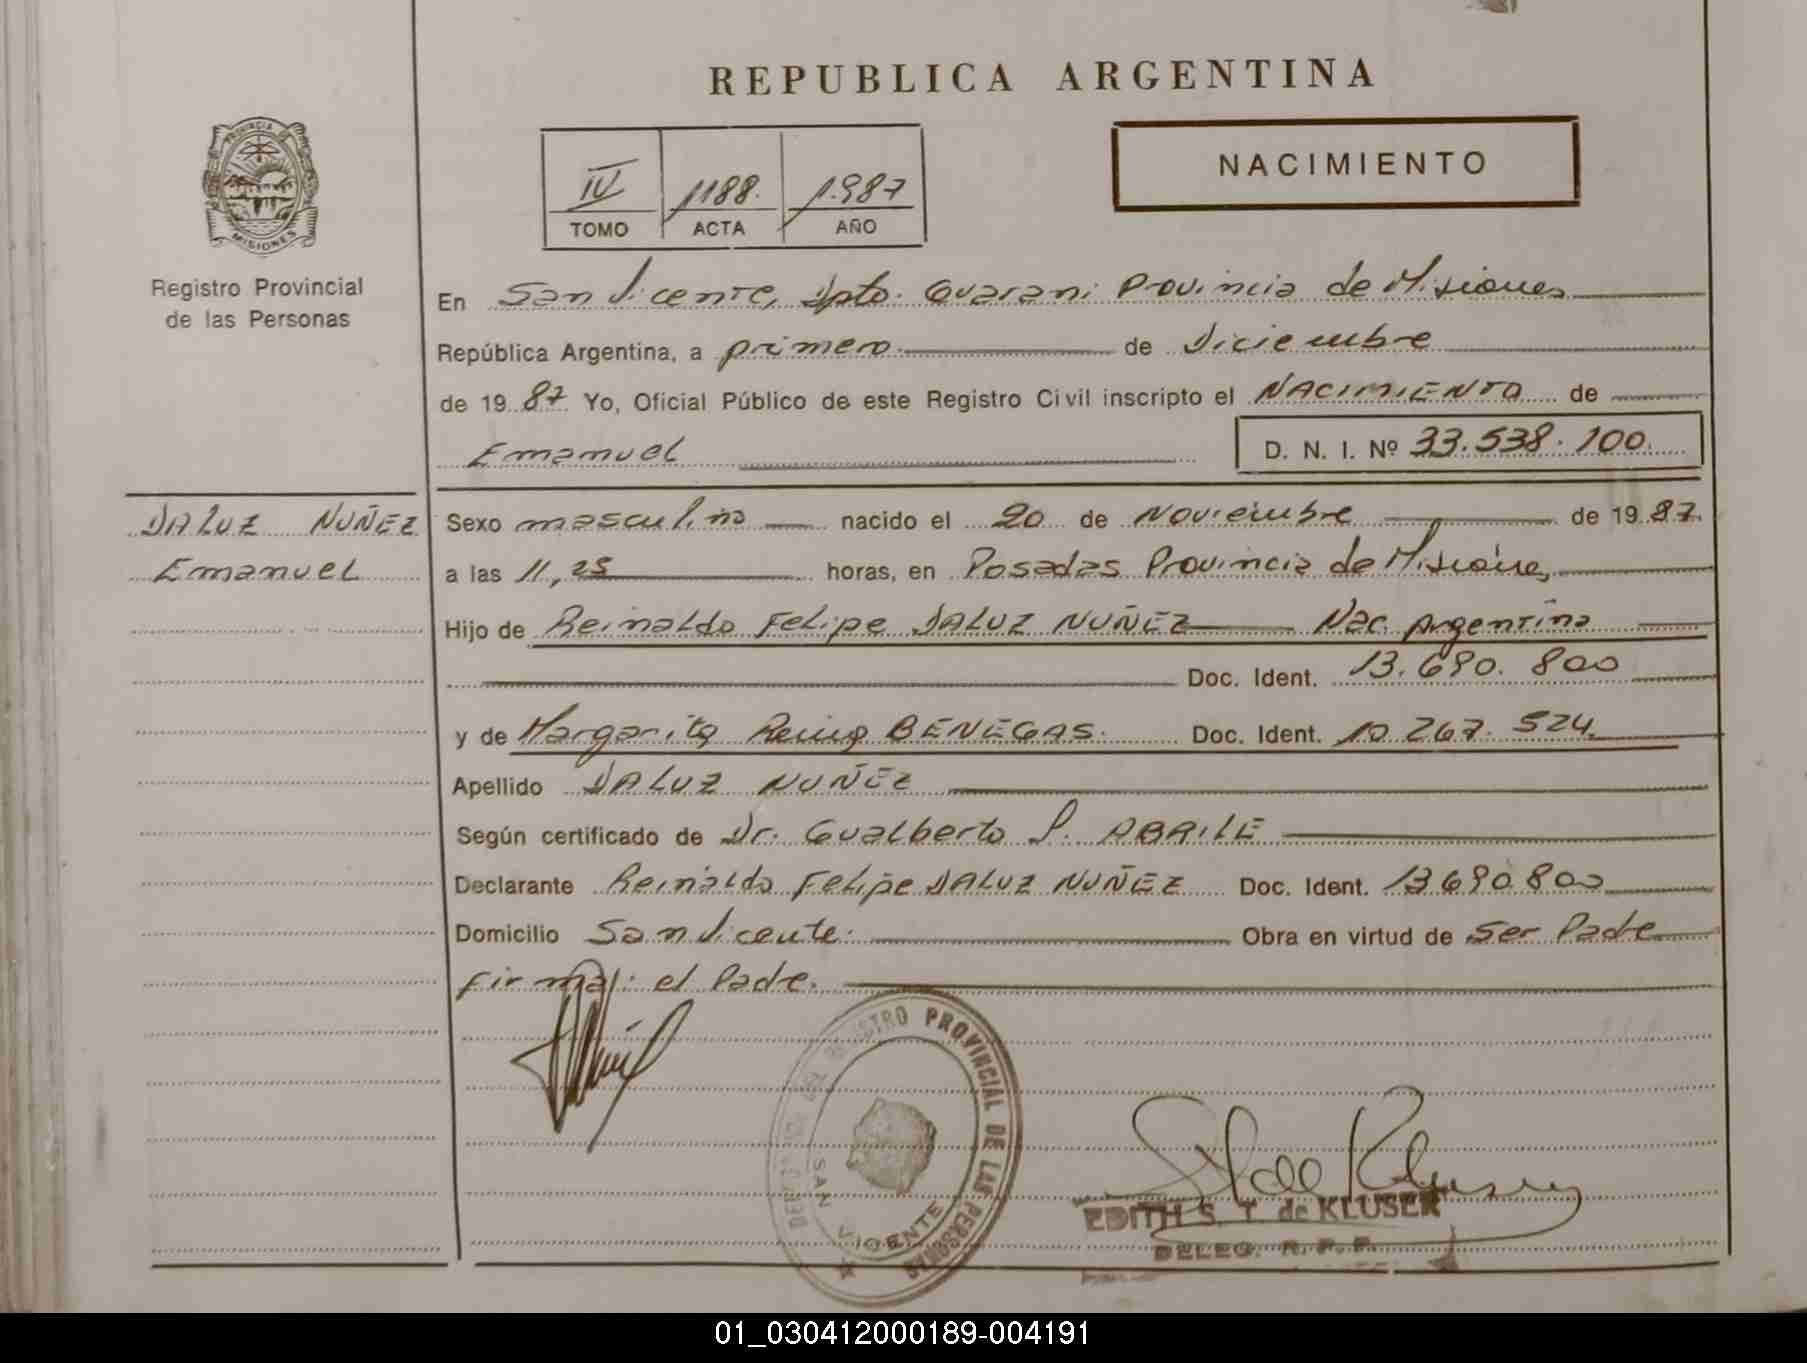 REPUBLICA ARGENTINA
PROVINCIA DE
MISIONES
Registro Provincial
de las Personas
IV 1188. 1.987
TOMO ACTA AÑO
NACIMIENTO
En San Vicente, Dpto. Guarani Provincia de Misiones
República Argentina, a primero de Diciembre
de 1987 Yo, Oficial Público de este Registro Civil inscripto el NACIMIENTO de
Emanuel D. N. I. Nº 33.538.100.
DALUZ NUÑEZ
Emanuel
Sexo masculino nacido el 20 de Noviembre de 1987.
a las 11,25 horas, en Posadas Provincia de Misiones,
Hijo de Reinaldo Felipe DALUZ NUÑEZ Nac. Argentina
Doc. Ident. 13.690.800
y de Margarita BENEGAS. Doc. Ident. 10.267.524.
Apellido DALUZ NUÑEZ
Según certificado de Dr. Gualberto P. ABRILE
Declarante Reinaldo Felipe DALUZ NUÑEZ Doc. Ident. 13690800
Domicilio San Vicente. Obra en virtud de ser Padre
firma: el Padre.
REGISTRO PROVINCIAL DE LAS PERSONAS
SAN VICENTE
EDITH S. T. de KLUSER
DELEG. R. P. P.
01_030412000189-004191